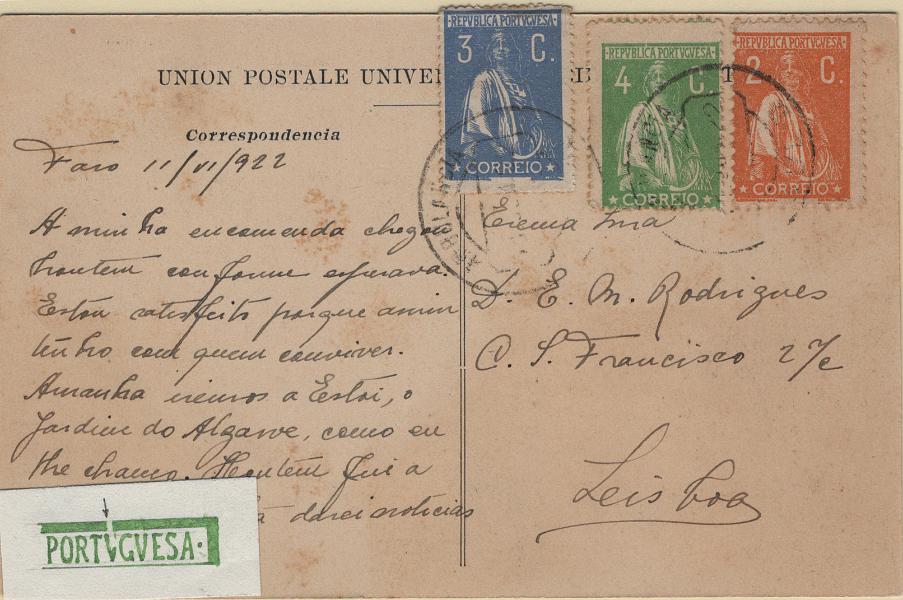 REPVBLICA PORTVGVESA
3 C.
CORREIO
REPVBLICA PORTVGVESA
4 C.
CORREIO
REPVBLICA PORTVGVESA
2 C.
CORREIO
UNION POSTALE UNIVER
Correspondencia
Faro 11/VI/922
A minha encomenda chegou
hontem conforme esperava.
Estou satisfeito porque assim
tenho com quem conviver.
Amanhã iremos a Estoi, o
Jardim do Algarve, como eu
lhe chamo. Hontem fui a
darei noticias
Exema Snra
D. E. M. Rodrigues
C. S. Francisco 27c
Leisboa
AMBULANCIA
PORTVGVESA.